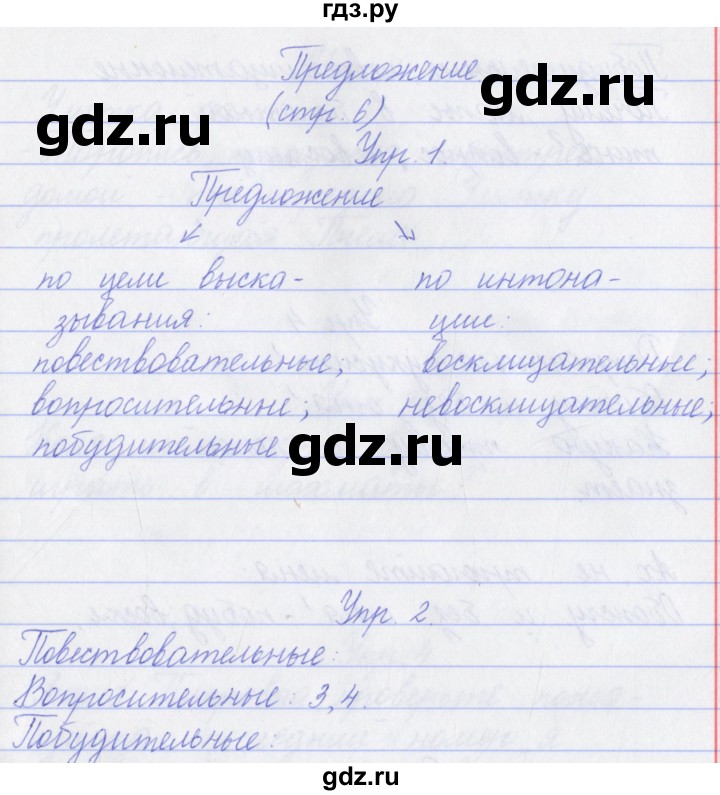 гдз.ру
Предложение
gdz.ru
gdz.ru
(стр. 6)
Упр. 1
Предложение
по цели выска-
зывания:
повествовательные;
вопросительные;
побудительные
по интона-
ции:
восклицательные;
невосклицательные;
gdz.ru
Упр. 2.
Повествовательные:
Вопросительные: 3,4.
Побудительные:
gdz.ru